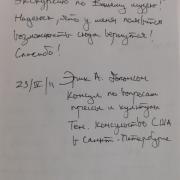 Экскурсию по Вашему музею!
Надеюсь, что у меня появится
возможность сюда вернуться!
Спасибо!
23/IV/11 Эрик А. Джонсон
Консул по вопросам
прессы и культуры
Ген. Консульство США
в Санкт-Петербурге